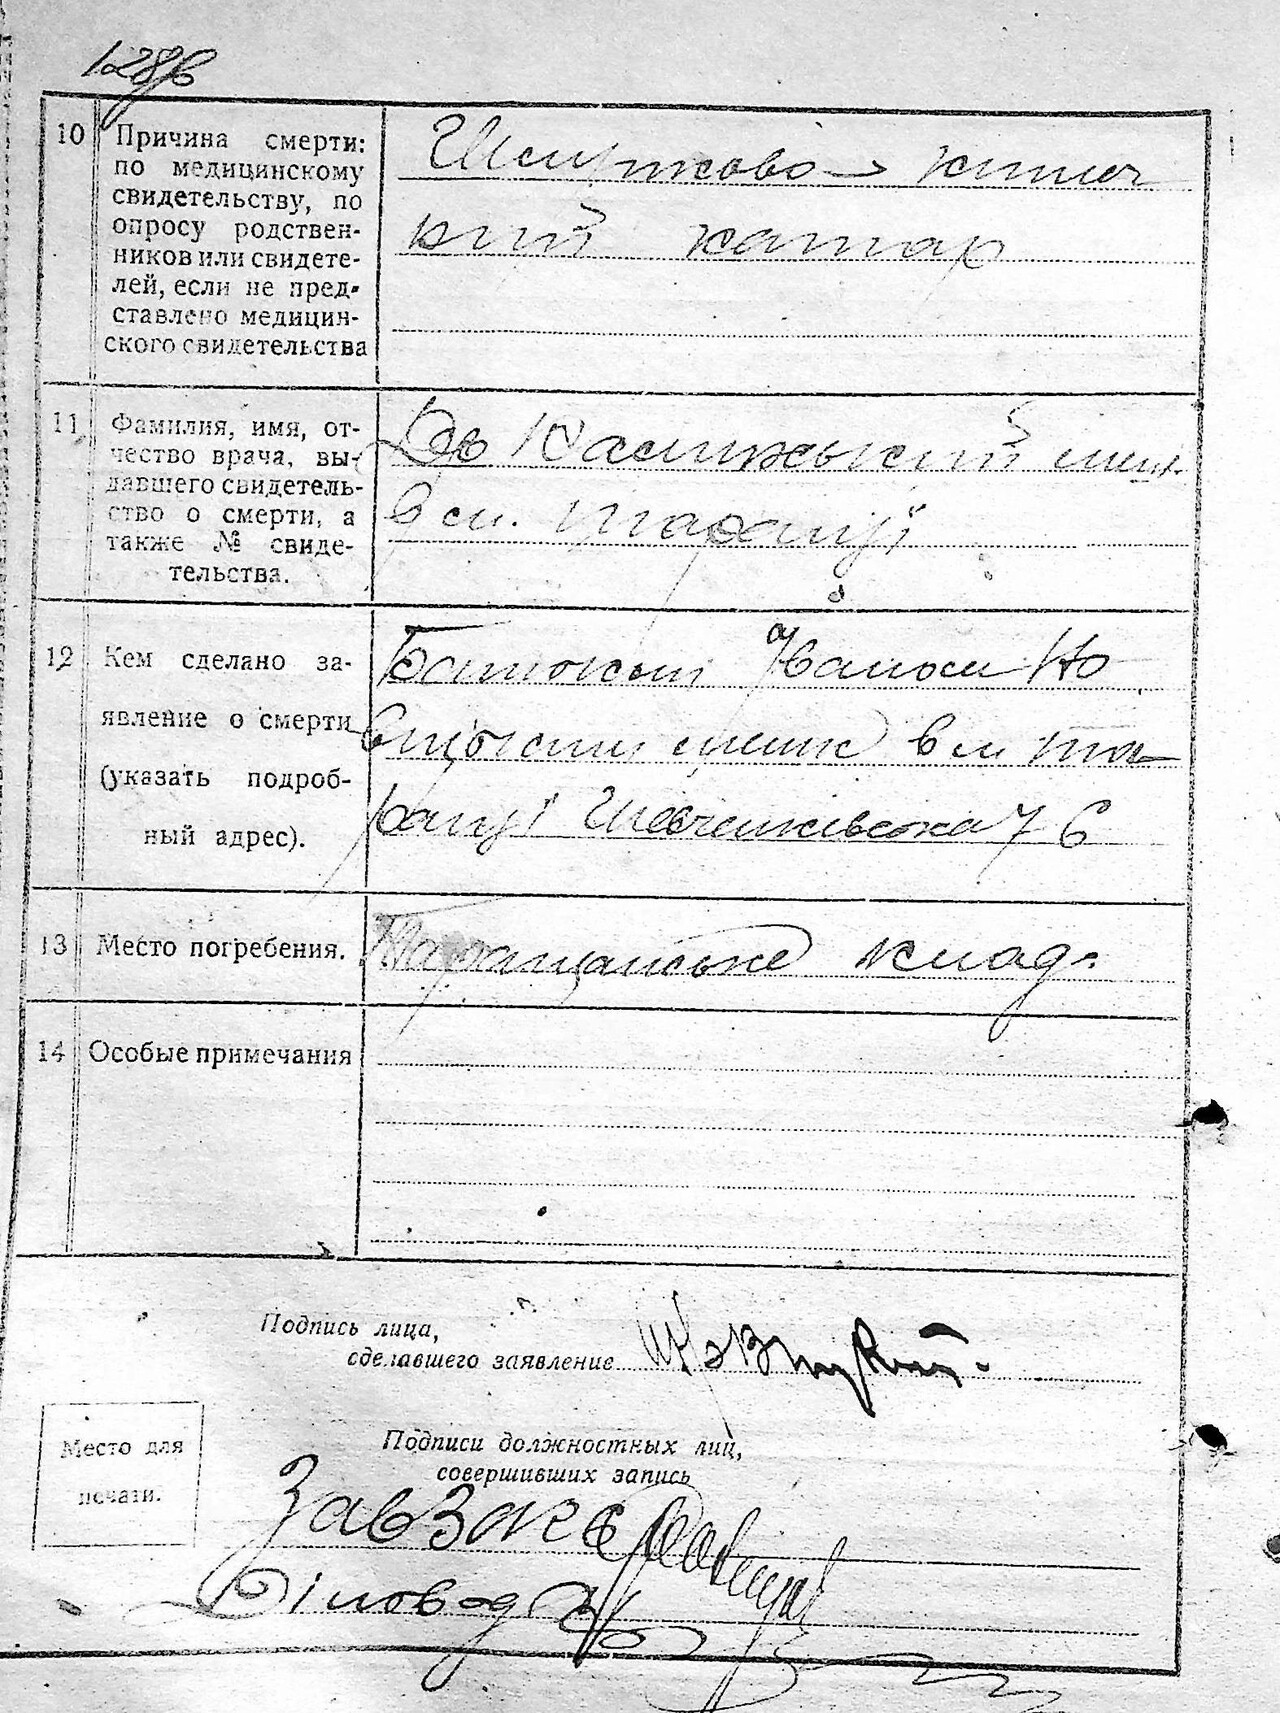 128в
10 Причина смерти:
по медицинскому
свидетельству, по
опросу родствен-
ников или свидете-
лей, если не пред-
ставлено медицин-
ского свидетельства
Шлунково - кишеч
ний катар
11 Фамилия, имя, от-
чество врача, вы-
давшего свидетель-
ство о смерти, а
также № свиде-
тельства.
в м. Таращі
12 Кем сделано за-
явление о смерти
(указать подроб-
ный адрес).
Батьком
в м Та
ращі Шевченківська 76
13 Место погребения.
Таращанське клад.
14 Особые примечания
Подпись лица,
сделавшего заявление
Место для
печати.
Подписи должностных лиц,
совершивших запись
Зав Загс
Діловод